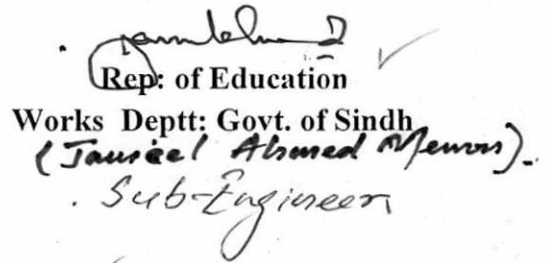 Rep: of Education
Works Deptt: Govt. of Sindh
Ahmed Memon).
Sub-Engineer